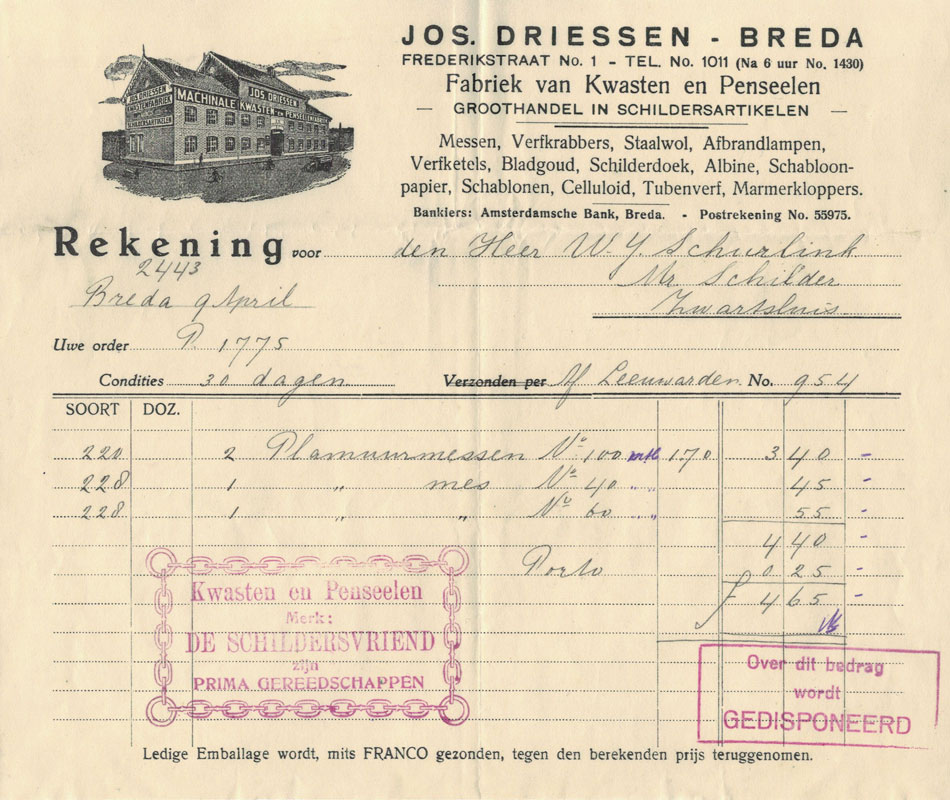 JOS. DRIESSEN - BREDA
FREDERIKSTRAAT No. 1 - TEL. No. 1011 (Na 6 uur No. 1430)
Fabriek van Kwasten en Penseelen
— GROOTHANDEL IN SCHILDERSARTIKELEN —
JOS. DRIESSEN
KWASTENFABRIEK
SCHILDERSARTIKELEN
JOS. DRIESSEN
MACHINALE KWASTEN EN PENSEELENFABRIEK
Messen, Verfkrabbers, Staalwol, Afbrandlampen,
Verfketels, Bladgoud, Schilderdoek, Albine, Schabloon-
papier, Schablonen, Celluloid, Tubenverf, Marmerkloppers.
Bankiers: Amsterdamsche Bank, Breda. - Postrekening No. 55975.
Rekening voor den Heer W. J. Schurlink
2443 Mr Schilder
Breda 9 April Zwartsluis
Uwe order P. 1775
Condities 30 dagen Verzonden per Leeuwarden No. 954
SOORT DOZ.
220 2 Plamuurmessen No 100 1.70 3 40 -
228 1 " mes No 40 " " 45 -
228 1 " " No 60 " " 55 -
4 40 -
Porto 0 25 -
f 4 65 -
Kwasten en Penseelen
Merk:
DE SCHILDERSVRIEND
zijn
PRIMA GEREEDSCHAPPEN
Over dit bedrag
wordt
GEDISPONEERD
Ledige Emballage wordt, mits FRANCO gezonden, tegen den berekenden prijs teruggenomen.